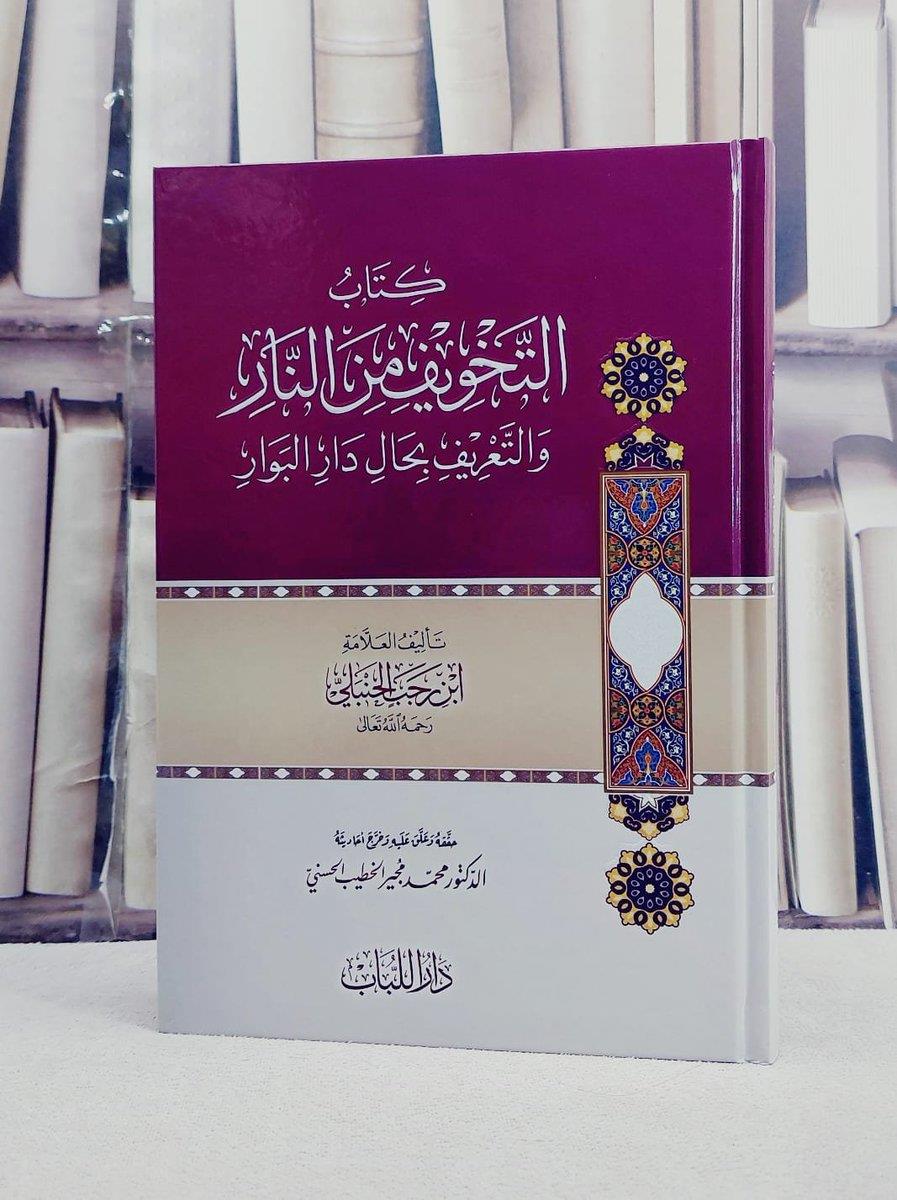 كِتَابُ
التَّخْوِيْفِ مِنَ النَّارِ
وَالتَّعْرِيْفِ بِحَالِ دَارِ البَوَارِ
تَأْلِيْفُ العَلَّامَةِ
ابْنِ رَجَبٍ الحَنْبَلِيِّ
رَحِمَهُ اللَّهُ تَعَالَى
حقَّقهُ وَعَلَّقَ عَلَيهِ وَخَرَّجَ أحَاديثَهُ
الدّكتور محمّد مُجير الخطيب الحسنيّ
دَارُ اللُّبَابْ